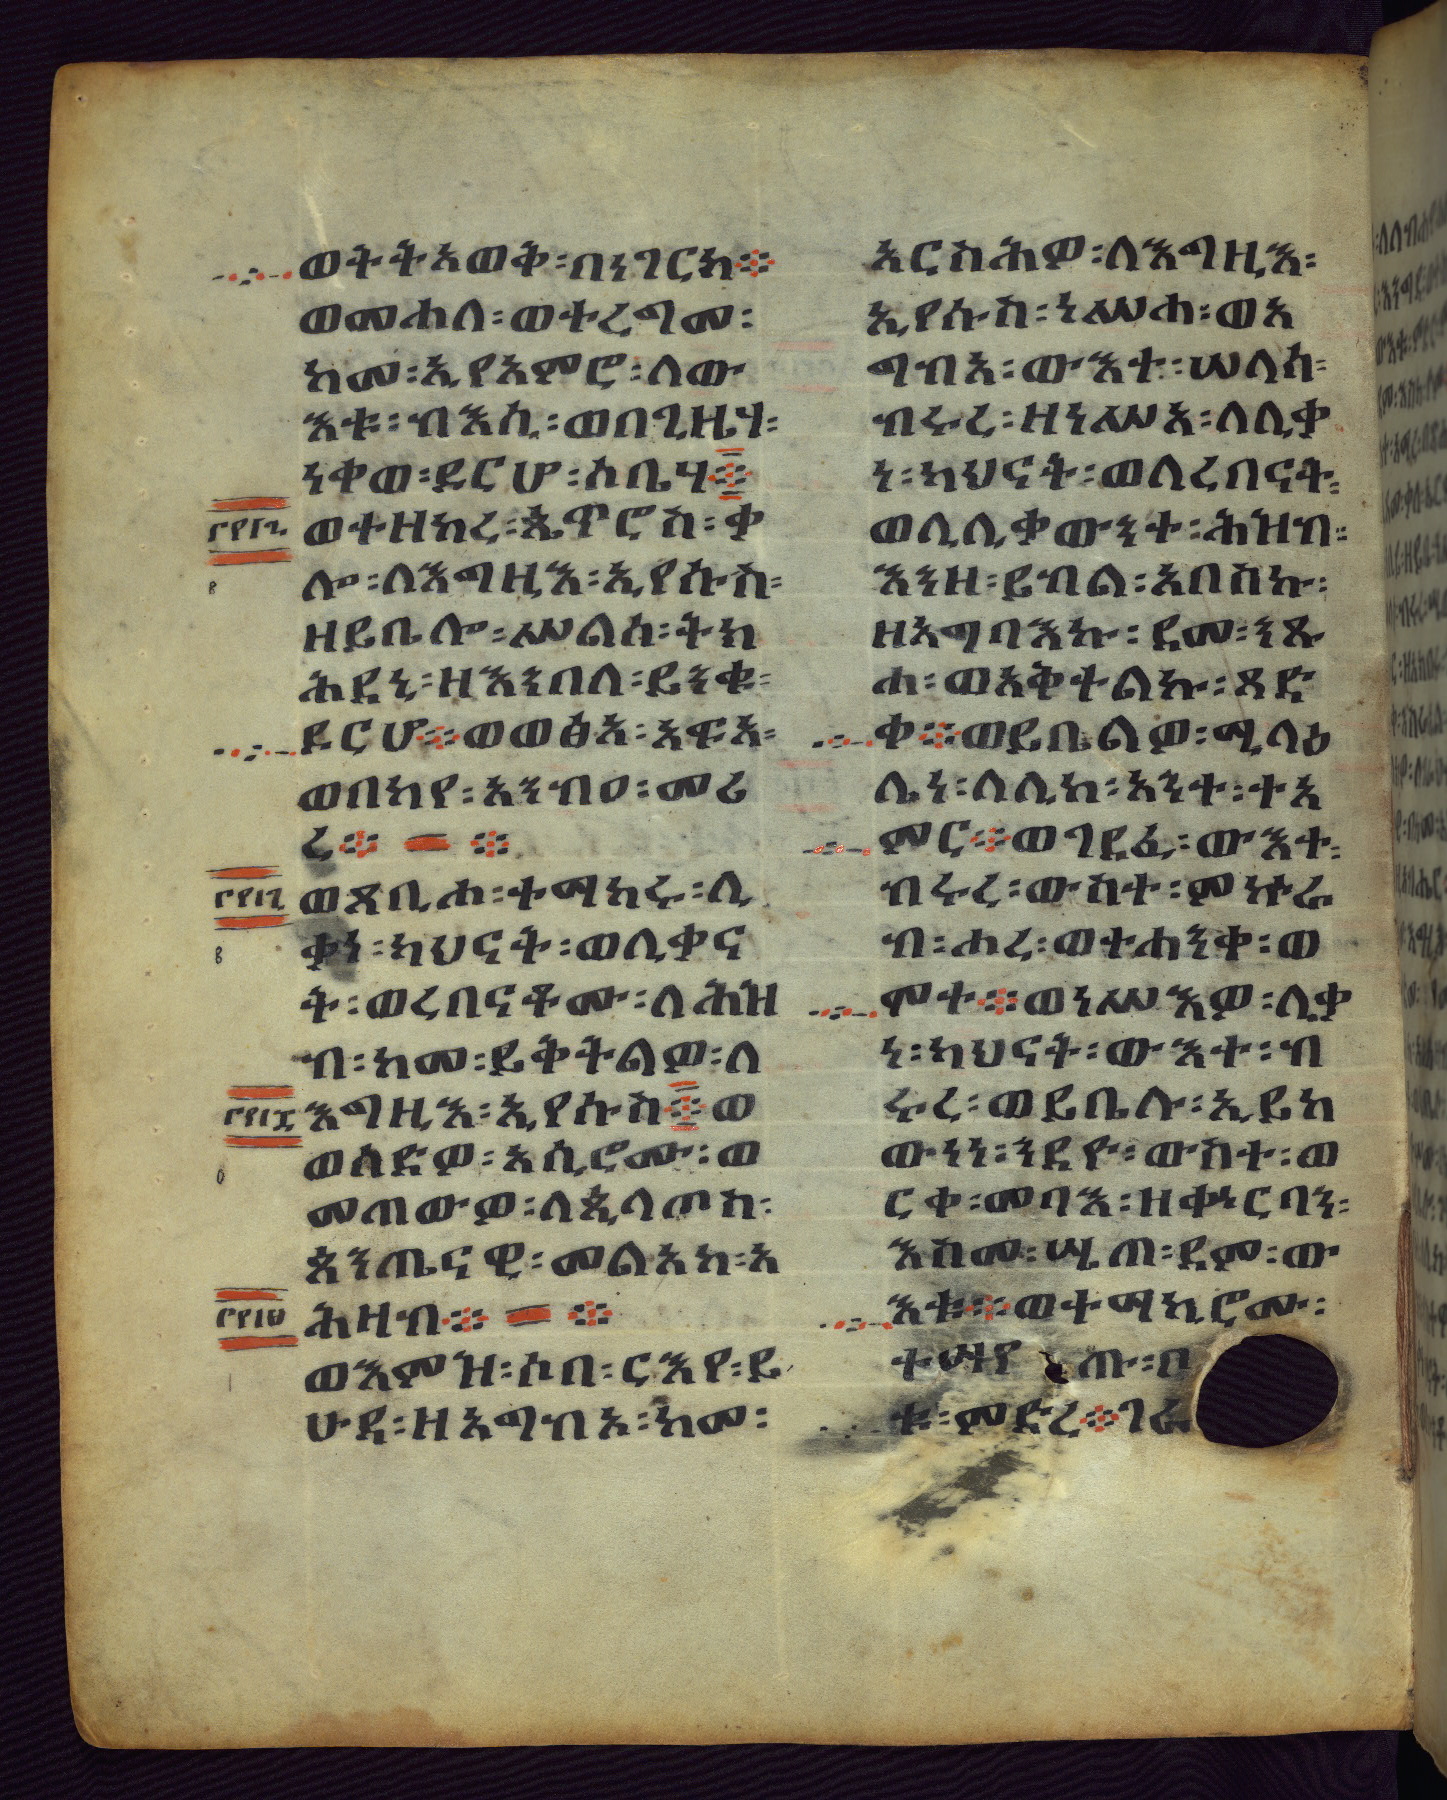 ወትትአወቅ፡በነገርከ፨
ወመሐለ፡ወተረግመ፡
ከመ፡ኢየአምሮ፡ለው
እቱ፡ብእሲ፡ወበጊዜሃ፡
ነቀወ፡ዶርሆ፡ስቤሃ፨
ወተዘከረ፡ጴጥሮስ፡ቃ
ሎ፡ለእግዚእ፡ኢየሱስ፡
ዘይቤሎ፡ሥልሰ፡ትክ
ሕደኒ፡ዘእንበለ፡ይንቁ፡
ዶርሆ፨ወወፅአ፡አፍአ፡
ወበከየ፡አንብዐ፡መሪ
ረ፨ ፨
ወጸቢሐ፡ተማከሩ፡ሊ
ቃነ፡ካህናት፡ወሊቃና
ት፡ወረበናቶሙ፡ለሕዝ
ብ፡ከመ፡ይቅትልዎ፡ለ
እግዚእ፡ኢየሱስ፨ወ
ወሰድዎ፡አሲሮሙ፡ወ
መጠውዎ፡ለጲላጦስ፡
ጰንጤናዊ፡መልአከ፡አ
ሕዛብ፨ ፨
ወእምዝ፡ሶበ፡ርእየ፡ይ
ሁዳ፡ዘአግብአ፡ከመ፡
አርስሕዎ፡ለእግዚእ፡
ኢየሱስ፡ነሥሐ፡ወአ
ግብአ፡ውእተ፡ሠላሰ፡
ብሩረ፡ዘነሥአ፡ለሊቃ
ነ፡ካህናት፡ወለረበናት፡
ወሊሊቃውንተ፡ሕዝብ፡
እንዘ፡ይብል፡አበስኩ፡
ዘአግባእኩ፡ደመ፡ንጹ
ሐ፡ወአቅተልኩ፡ጻድ
ቀ፨ወይቤልዎ፡ሚላዕ
ሌነ፡ለሊከ፡አንተ፡ተአ
ምር፨ወገደፈ፡ውእተ፡
ብሩረ፡ውስተ፡ምኩራ
ብ፡ሐረ፡ወተሐንቀ፡ወ
ሞተ፨ወነሥእዎ፡ሊቃ
ነ፡ካህናት፡ውእተ፡ብ
ሩረ፡ወይቤሉ፡ኢይከ
ውነነ፡ንደዮ፡ውስተ፡ወ
ርቀ፡መባእ፡ዘቍርባን፡
እስመ፡ሤጠ፡ደመ፡ው
እቱ፨ወተማኪሮሙ፡
ተሣየጡ፡ቦ
ቱ፡መድረ፨ገራ